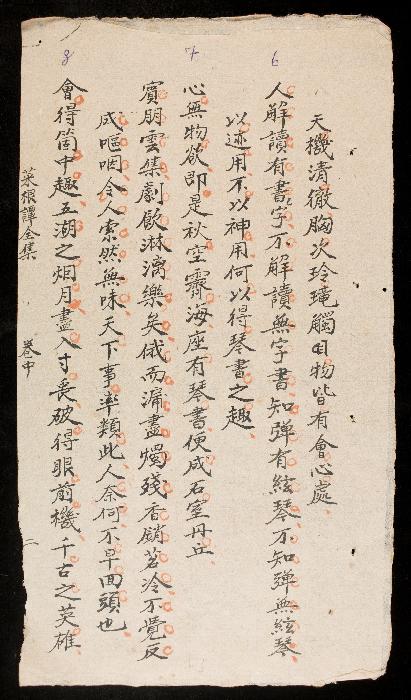 天機清徹胸次玲瓏觸目物皆有會心處
6
人解讀有書字不解讀無字書知弹有絃琴不知弹無絃琴
以迹用不以神用何以得琴書之趣
7
心無物欲即是秋空霽海座有琴書便成石室丹丘
賓朋雲集劇飲淋漓樂矣俄而漏盡燭殘香銷茗冷不覺反
成嘔咽令人索然無味天下事率類此人奈何不早回頭也
8
會得箇中趣五湖之烟月盡入寸裏破得眼前機千古之英雄
菜根譚全集
卷中
二